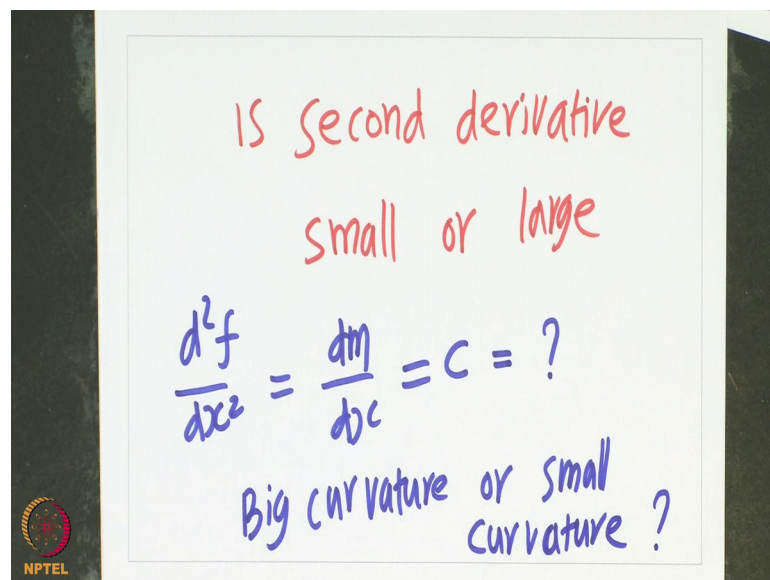 Is second derivative
small or large
d²f/dx² = dm/dx = C = ?
Big curvature or small
curvature ?
NPTEL